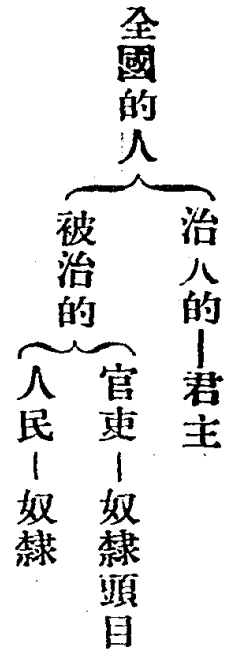 全國的人
治人的—君主
被治的
官吏—奴隸頭目
人民—奴隸